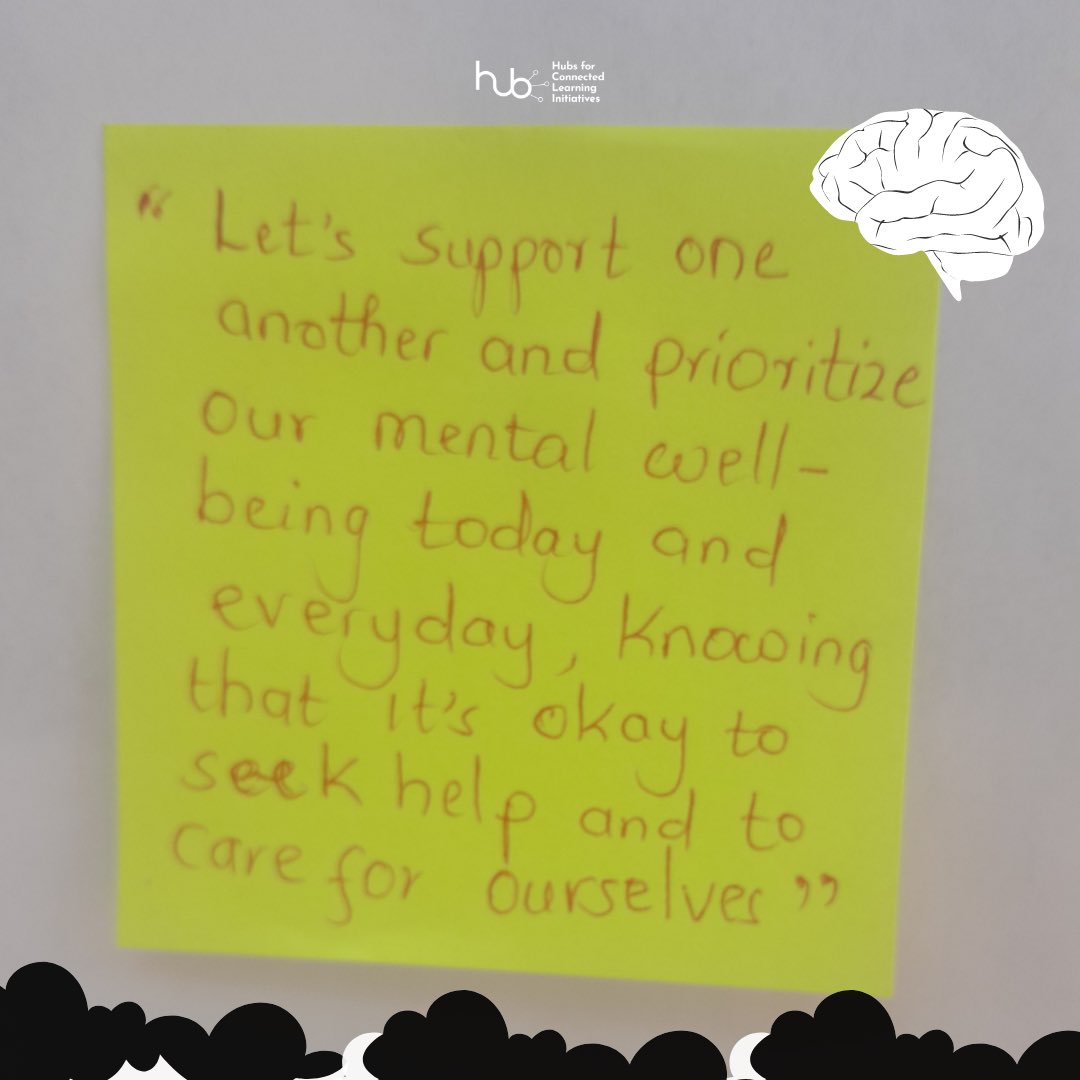 hub
Hubs for
Connected
Learning
Initiatives
“ Let's support one
another and prioritize
our mental well-
being today and
everyday, Knowing
that it's okay to
seek help and to
care for ourselves ”